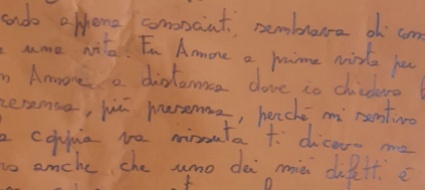 appena conosciuti, sembrava di
una vita. Fu Amore a prima vista per
Amore a distanza dove io chiedevo
presenza, più presenza, perché mi sentivo
coppia va vissuta ti dicevo ma
anche che uno dei miei difetti è